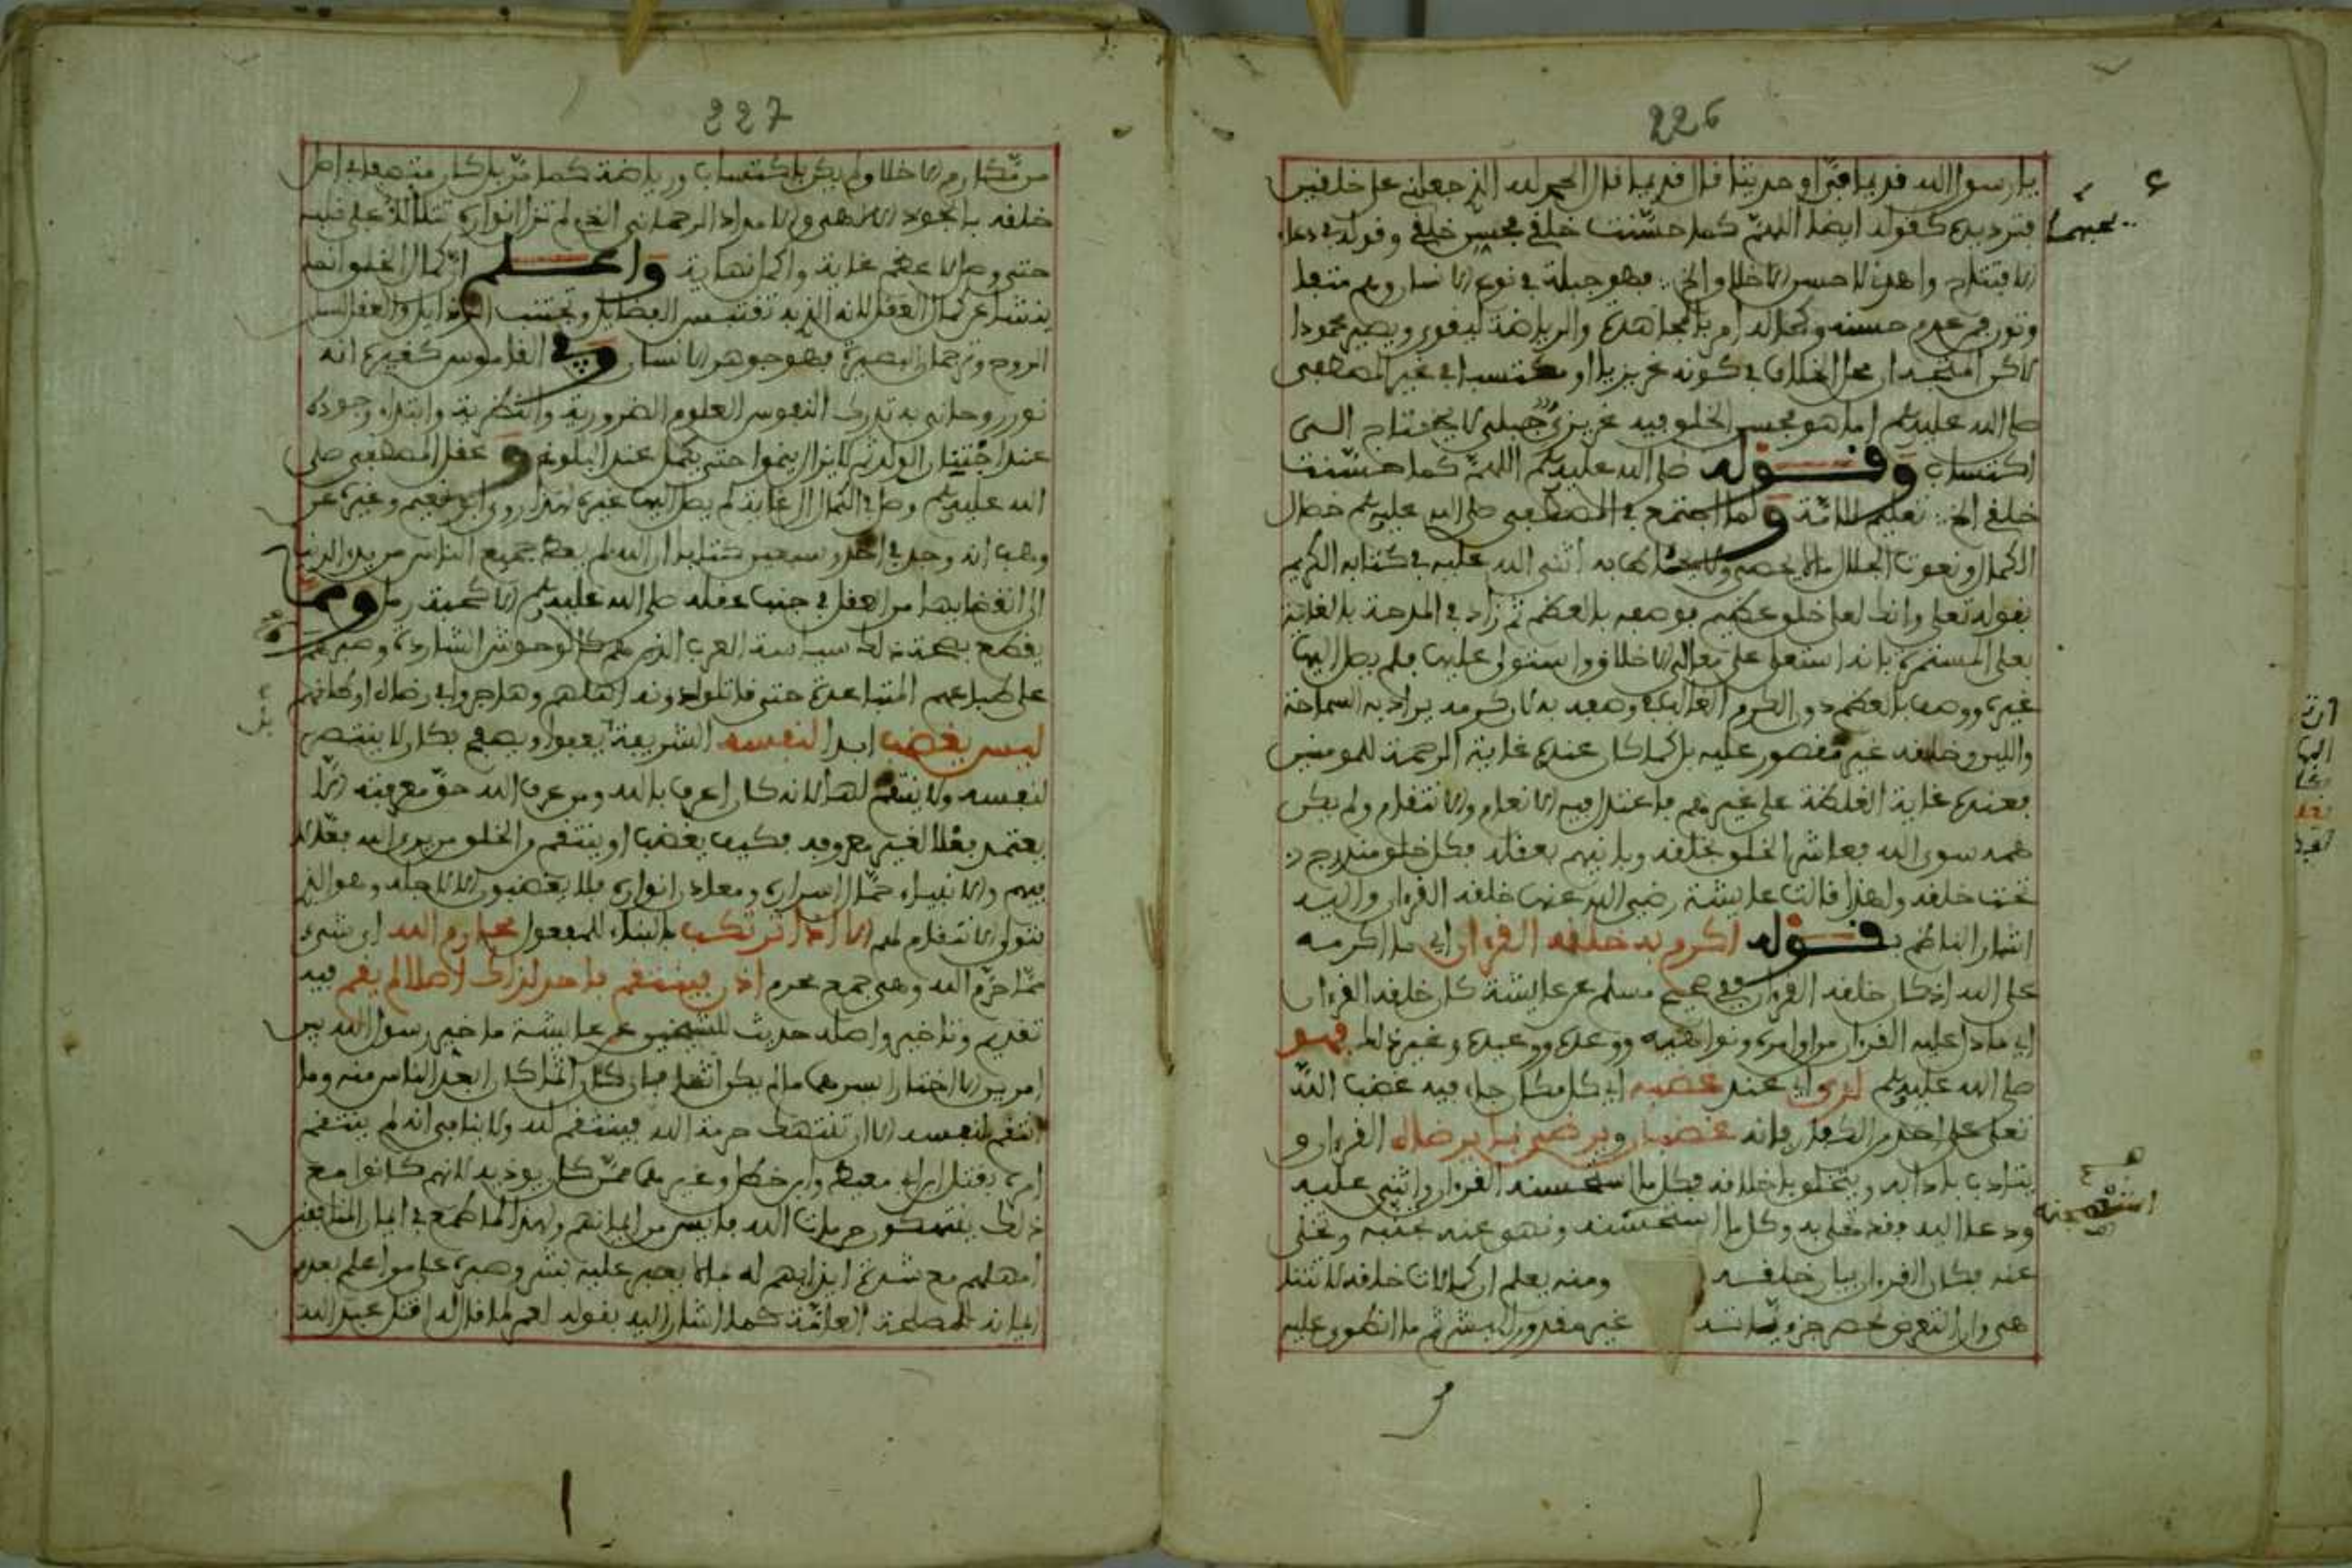 226
يا رسول الله قديما فيّ او حديثا قال قديما قال الحمد لله الذي جعلني على خلقين
يحبهما
فترديده كقوله ايضا اللهم كما حسّنت خلقي فحسن خلقي وقوله في دعاء
الافتتاح واهدني لاحسن الاخلاق الخ فهو جبلة في نوع الانسان وهم متفا
وتون فمن عدم حسنه وكماله امر بالمجاهدة والرياضة ليقوى ويصير محمودا
لاكن محل الخلاف في كونه غريزيا او مكتسبا في غير المصطفى
صلى الله عليه وسلم اما هو فحسن الخلق فيه غريزي جبلي لا يحتاج الى
اكتساب وقوله صلى الله عليه وسلم اللهم كما حسّنت
خلقي الخ تعليم للامة ولما اجتمع في المصطفى صلى الله عليه وسلم خصال
الكمال ونعوت الجلال ما لا يحصى ولا يحاط به اثنى الله عليه في كتابه الكريم
بقوله تعالى وانك لعلى خلق عظيم فوصفه بالعظم ثم زاد في المدحة بالغاية
بعلى المستمرة بانه استعلى على معالي الاخلاق واستولى عليها فلم يصل اليها
غيره ووصف بالعظم دون الكرم الغالب وصفه به لان كرمه يراد به السماحة
واللين وخلقه غير مقصور عليه بل كما كان عنده غاية الرحمة للمومنين
فعنده غاية الغلظة على غيرهم فاعتدل فيه الانعام والانتقام ولم يكن
همه سوى الله فعاشر الخلق بخلقه وباينهم بعقله فكل خلق مندرج
تحت خلقه ولهذا قالت عايشة رضي الله عنها خلقه القرءان واليه
اشار الناظم بقوله اكرم به خلقه القرءان اي ما اكرمه
على الله اذ كان خلقه القرءان ففي صحيح مسلم عن عايشة كان خلقه القرءان
اي ما دل عليه القرءان من اوامره ونواهيه ووعده ووعيده وغير ذلك فهو
صلى الله عليه وسلم لدى اي عند غضبه اي كل مكان جاء فيه غضب الله
تعالى على احد من الكفار فانه غضبان ويرضى بما يرضاه القرءان و
يتادب بادابه ويتخلق باخلاقه فكل ما استحسنه القرءان واثنى عليه
ودعا اليه فقد تحلى به وكل ما استحسنه ونهى عنه تجنبه وتخلى
استهجنه
عنه فكان القرءان بيان خلقه ومنه يعلم ان كمالات خلقه لا تتنا
هى وان التعرض لحصر جزءياته غير مقدور للبشر ثم ما انطوى عليه
227
من مكارم الاخلاق لم يكن باكتساب ورياضة كما مرّ بل كان متصفا في اصل
خلقه بالجود الالاهي والامداد الرحماني الذي لم تزل انواره تتلالا على قلبه
حتى وصل لاعظم غاية واكمل نهاية واعلم ان كمال الخلق انما
ينشا عن كمال العقل لانه الذي به تقتبس الفضايل وتجتنب الرذايل والعقل لسان
الروح وترجمان البصيرة فهو جوهر الانسان وفي القاموس كغيره انه
نور روحاني به تدرك النفوس العلوم الضرورية والنظرية وابتداء وجوده
عند اجتنان الولد ثم لا يزال ينموا حتى يكمل عند البلوغ وعقل المصطفى صلى
الله عليه وسلم وصل في الكمال الى غاية لم يصل اليها غيره لهذا روى ابو نعيم وغيره عن
وهب انه وجد في احد وسبعين كتابا ان الله لم يعط جميع الناس من بدء الدنيا
الى انقضايها من العقل في جنب عقله صلى الله عليه وسلم الا كحبة رمل ومما
يقطع بصحة ذلك سياسة العرب الذين هم كالوحوش الشاردة وصبره
على طباعهم المتباعدة حتى قاتلوا دونه اهلهم وهاجروا في رضاه اوطانهم
ليس يغضب ابدا لنفسه الشريفة بل يعفوا ويصفح فكان لا ينتصر
لنفسه ولا ينتقم لها لانه كان اعرف بالله ومن عرف الله حق معرفته لا
يعتمد فعلا لغير معروفه فكيف يغضب او ينتقم والخلق من يرى الله فعالا
فيهم والانبياء حمّال اسراره ومعادن انواره فلا يغضبون الا لاجله وهو الذي
يتولى الانتقام لهم الا اذا ترتكب بالبناء للمفعول محارم الله اي شيء
ممّا حرّم الله وهي جمع محرم اذن فينتقم فاحد لذاك اصلا لم يقم فيه
تقديم وتاخير واصله حديث الشيخين عن عايشة ما خير رسول الله بين
امرين الا اختار ايسرهما ما لم يكن اثما فان كان اثما كان ابعد الناس منه وما
انتقم لنفسه الا ان تنتهك حرمة الله فينتقم لله ولا ينافي انه لم ينتقم
امره بقتل ابن ابي معيط وابن خطل وغيرهما ممّن كان يوذيه لانهم كانوا مع
ذلك ينتهكون حرمات الله فايس من ايمانهم ولهذا لما طمع في ايمان المنافقين
امهلهم مع شدة ايذايهم له فلم يعجر عليه بشر وصبره على من اعلم بعدم
ايمانه للمصلحة العامّة كما اشار اليه بقوله لعمر لما قال له اقتل عبد الله